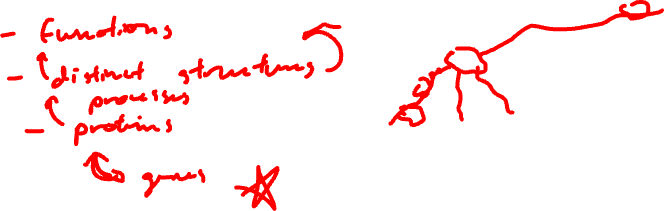 - functions
- distinct structures
processes
- proteins
genes